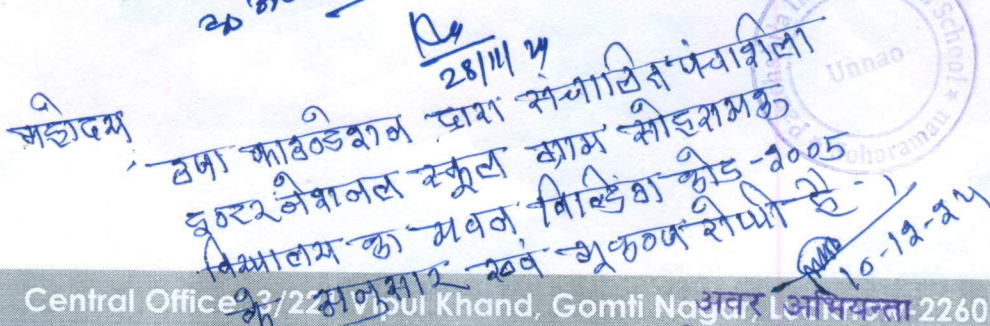 28/11/24
महोदय,
ऊर्जा फाउण्डेशन द्वारा संचालित पंचशिला
इण्टरनेशनल स्कूल ग्राम सोहरामऊ
विद्यालय का भवन, बिल्डिंग कोड-2005
के अनुसार एवं भूकम्प रोधी है।
10-12-24
अवर अभियन्ता
School
Unnao
Soharamau
Central Office 3/22 Vipul Khand, Gomti Nagar, -2260